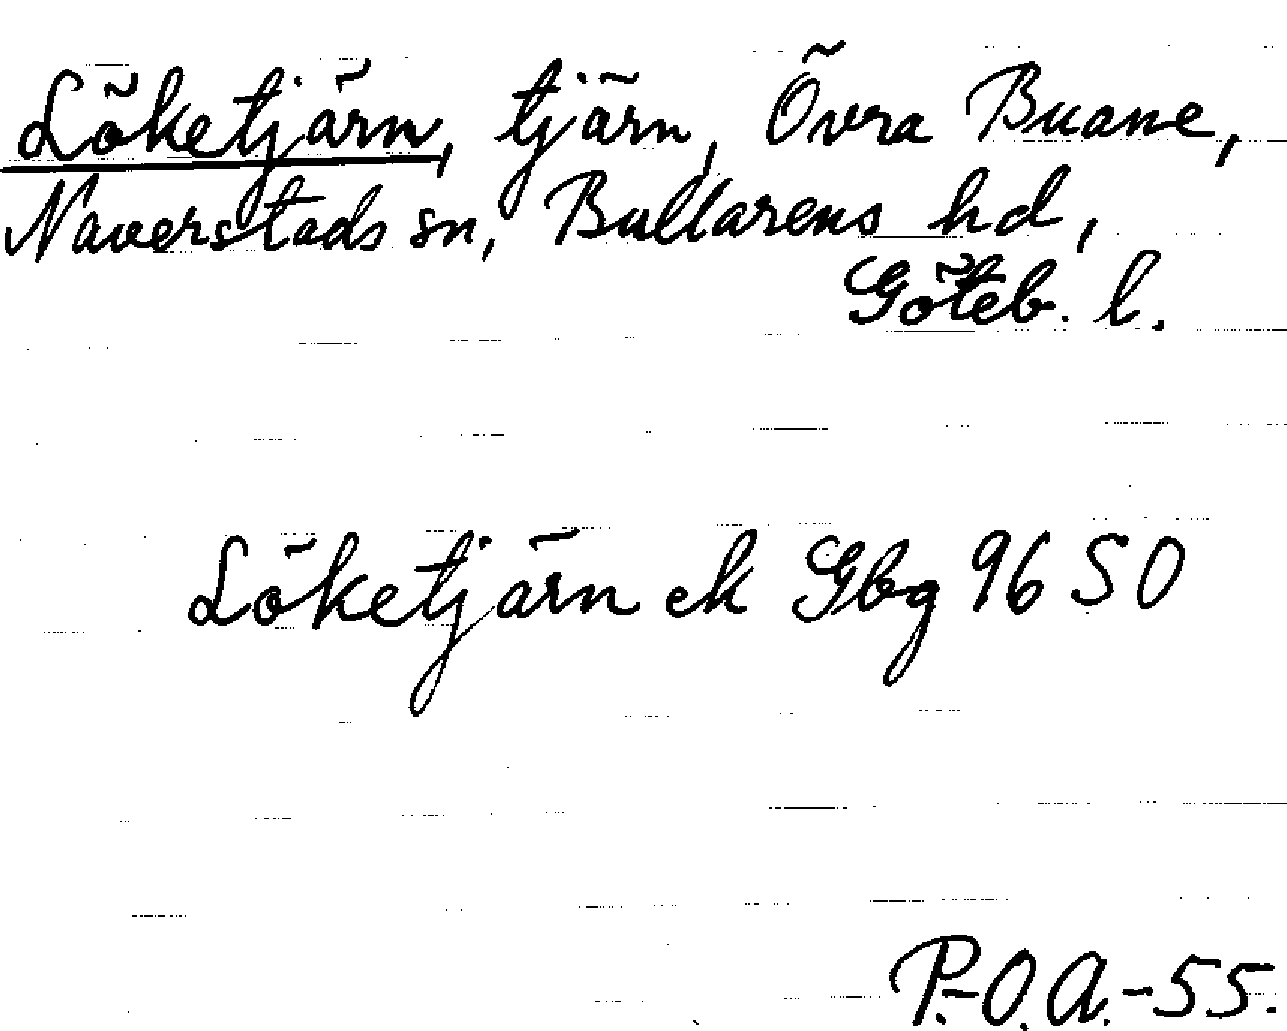 Löketjärn, tjärn, Övra Buane,
Naverstads sn, Bullarens hd,
Göteb. l.
Löketjärn ek Gbg 96 SO
P.-O.A.-55.